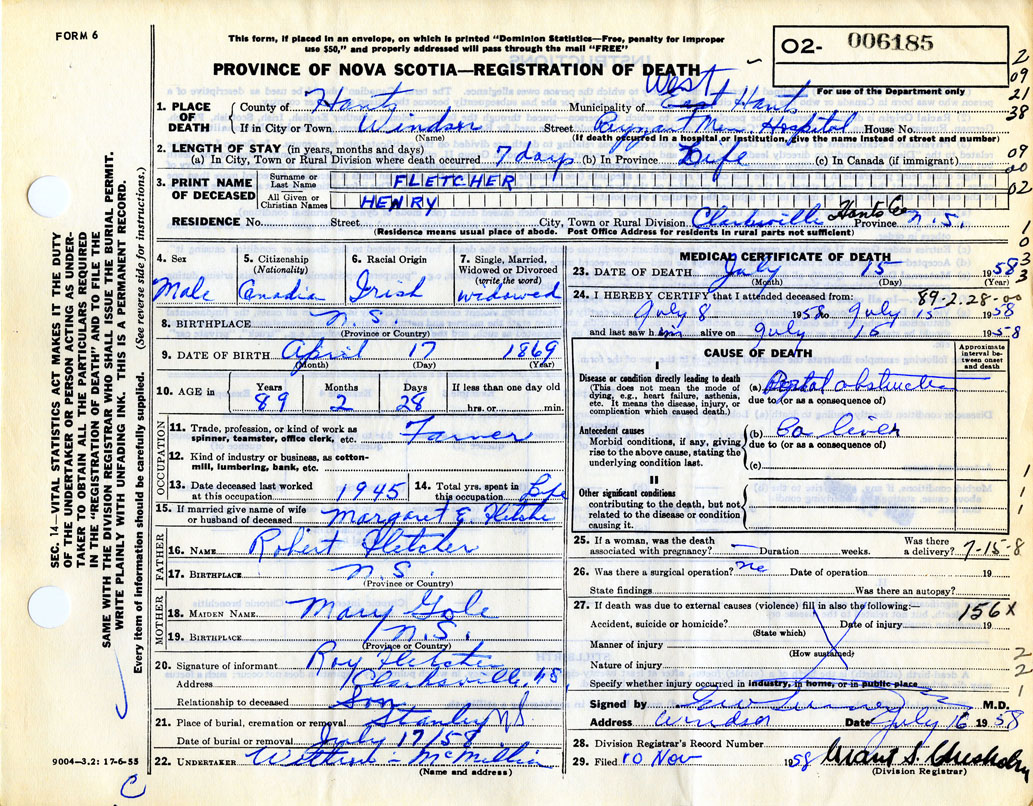 FORM 6
This form, if placed in an envelope, on which is printed "Dominion Statistics—Free, penalty for improper
use $50," and properly addressed will pass through the mail "FREE"
O2- 006185
For use of the Department only
PROVINCE OF NOVA SCOTIA—REGISTRATION OF DEATH
2
09
21
38
09
00
02
1
0
3
3
West
1. PLACE OF DEATH County of Hants Municipality of East Hants
If in City or Town Windsor Street Payzant Mem. Hospital House No.
(Name) (If death occurred in a hospital or institution, give the name instead of street and number)
2. LENGTH OF STAY (in years, months and days)
(a) In City, Town or Rural Division where death occurred 7 days (b) In Province Life (c) In Canada (if immigrant)
3. PRINT NAME OF DECEASED Surname or Last Name FLETCHER
All Given or Christian Names HENRY
RESIDENCE No. Street City, Town or Rural Division Clarksville Hants Co Province N.S.
(Residence means usual place of abode. Post Office Address for residents in rural parts not sufficient)
4. Sex Male
5. Citizenship (Nationality) Canadian
6. Racial Origin Irish
7. Single, Married, Widowed or Divorced (write the word) widowed
8. BIRTHPLACE N.S.
(Province or Country)
9. DATE OF BIRTH April 17 1869
(Month) (Day) (Year)
10. AGE in Years 89 Months 2 Days 28 If less than one day old hrs. or min.
OCCUPATION
11. Trade, profession, or kind of work as spinner, teamster, office clerk, etc. Farmer
12. Kind of industry or business, as cotton-mill, lumbering, bank, etc.
13. Date deceased last worked at this occupation 1945
14. Total yrs. spent in this occupation Life
15. If married give name of wife or husband of deceased Margaret E. Fletcher
FATHER
16. NAME Robert Fletcher
17. BIRTHPLACE N.S.
(Province or Country)
MOTHER
18. MAIDEN NAME Mary Cole
19. BIRTHPLACE N.S.
(Province or Country)
20. Signature of informant Roy Fletcher
Address Clarksville N.S.
Relationship to deceased Son
21. Place of burial, cremation or removal Stanley N S
Date of burial or removal July 17/58
22. UNDERTAKER McMillan
(Name and address)
MEDICAL CERTIFICATE OF DEATH
23. DATE OF DEATH July 15 1958
(Month) (Day) (Year)
24. I HEREBY CERTIFY that I attended deceased from: 89-2-28-00
July 8 1958 to July 15 1958
and last saw him alive on July 15 1958
CAUSE OF DEATH
Approximate interval between onset and death
I
Disease or condition directly leading to death
(This does not mean the mode of dying, e.g., heart failure, asthenia, etc. It means the disease, injury, or complication which caused death.)
(a) Portal obstruction
due to (or as a consequence of)
Antecedent causes
Morbid conditions, if any, giving rise to the above cause, stating the underlying condition last.
(b) Ca liver
due to (or as a consequence of)
(c)
II
Other significant conditions
contributing to the death, but not related to the disease or condition causing it.
1
1
1
25. If a woman, was the death associated with pregnancy? Duration weeks. Was there a delivery? 7-15-8
26. Was there a surgical operation? no Date of operation 19
State findings Was there an autopsy?
27. If death was due to external causes (violence) fill in also the following:— 156X
Accident, suicide or homicide? Date of injury 19
(State which)
Manner of injury
(How sustained)
Nature of injury
Specify whether injury occurred in industry, in home, or in public place
2
2
1
Signed by M.D.
Address Windsor Date July 16 1958
28. Division Registrar's Record Number
29. Filed 10 Nov 1958 Grant S. Chisholm
(Division Registrar)
SEC. 14—VITAL STATISTICS ACT MAKES IT THE DUTY
OF THE UNDERTAKER OR PERSON ACTING AS UNDER-
TAKER TO OBTAIN ALL THE PARTICULARS REQUIRED
IN THE "REGISTRATION OF DEATH" AND TO FILE THE
SAME WITH THE DIVISION REGISTRAR WHO SHALL ISSUE THE BURIAL PERMIT.
WRITE PLAINLY WITH UNFADING INK. THIS IS A PERMANENT RECORD.
Every item of information should be carefully supplied. (See reverse side for instructions.)
9004—3.2: 17-6-55
C